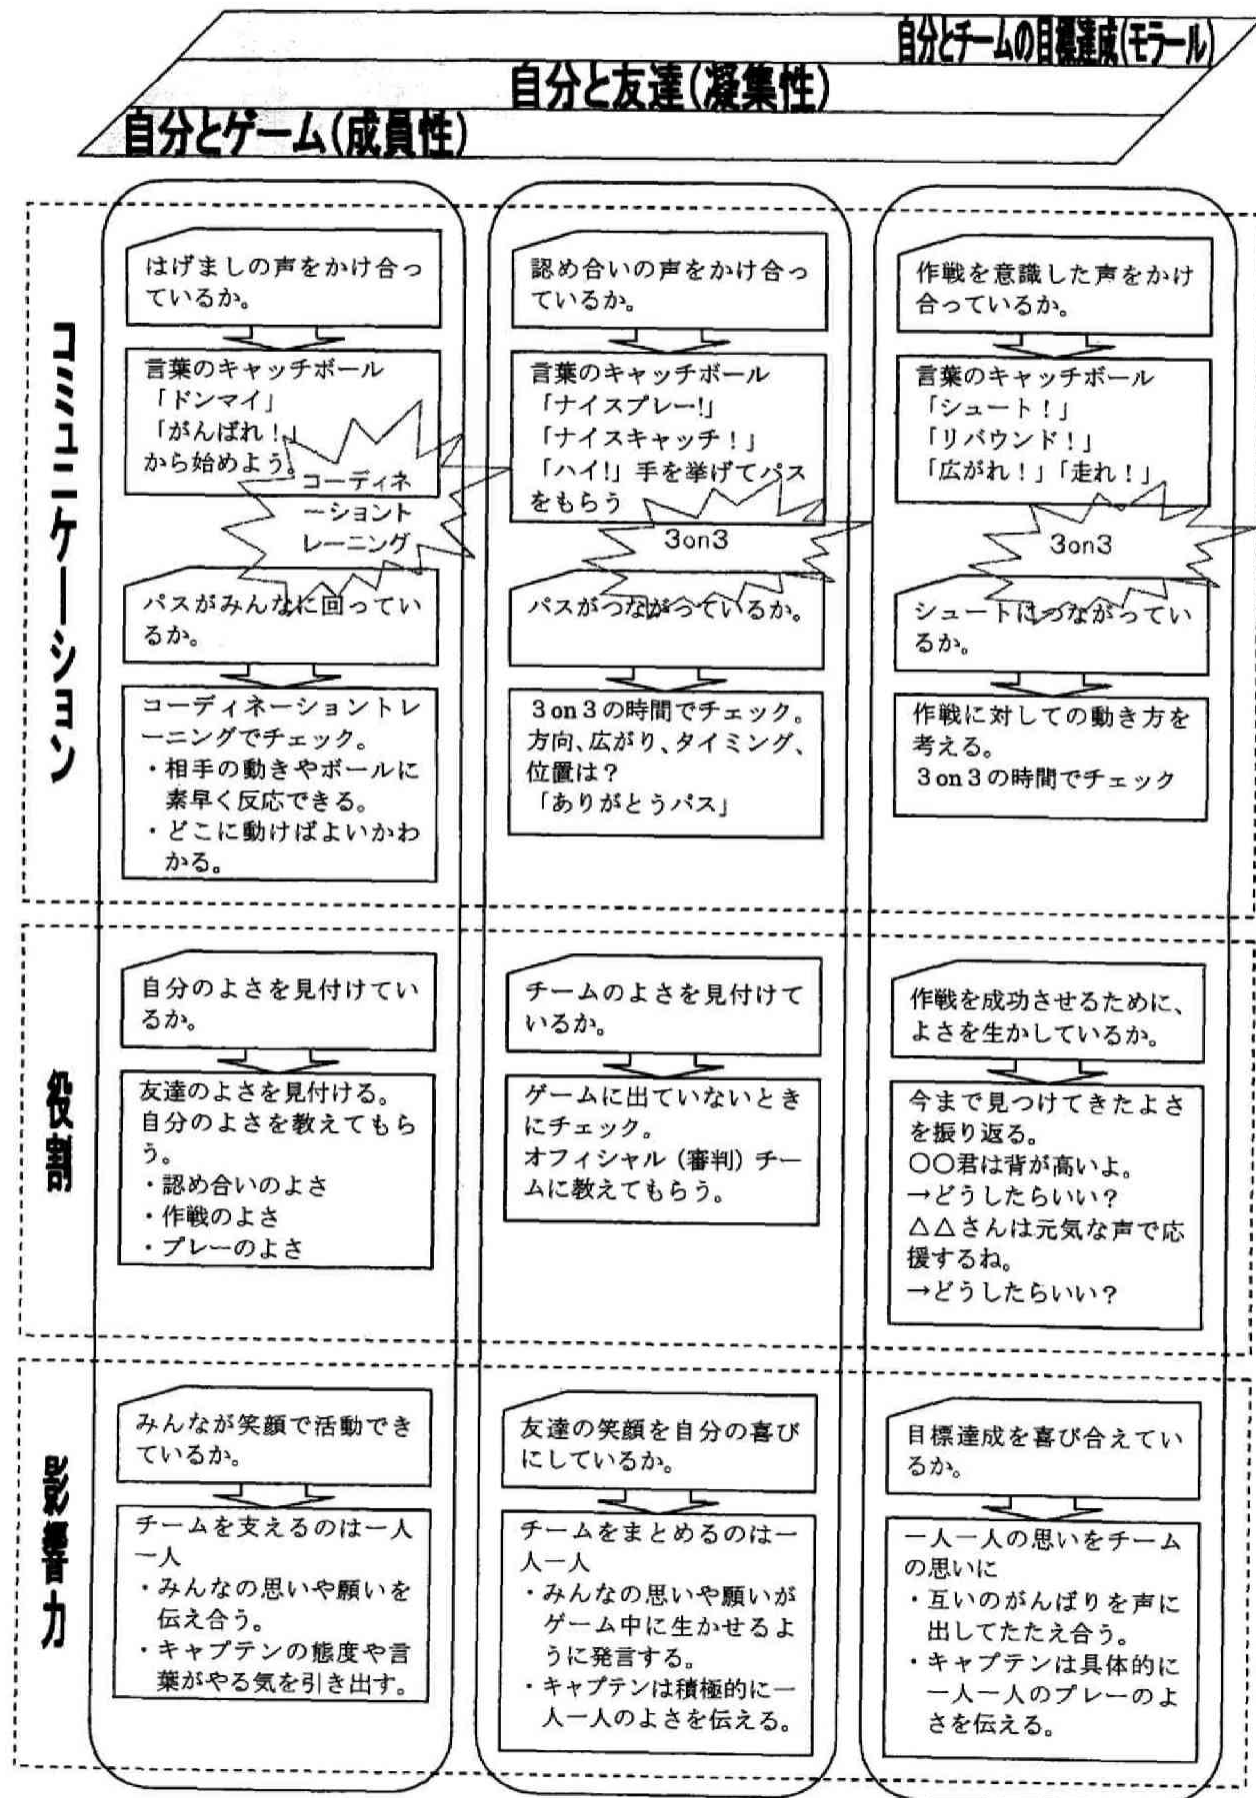 自分とチームの目標達成(モラール)
自分と友達(凝集性)
自分とゲーム(成員性)
コミュニケーション
はげましの声をかけ合っ
ているか。
言葉のキャッチボール
「ドンマイ」
「がんばれ！」
から始めよう。
コーディネ
ーショント
レーニング
パスがみんなに回ってい
るか。
コーディネーショントレ
ーニングでチェック。
・相手の動きやボールに
素早く反応できる。
・どこに動けばよいかわ
かる。
認め合いの声をかけ合っ
ているか。
言葉のキャッチボール
「ナイスプレー!」
「ナイスキャッチ！」
「ハイ!」手を挙げてパス
をもらう
3on3
パスがつながっているか。
3on3の時間でチェック。
方向、広がり、タイミング、
位置は？
「ありがとうパス」
作戦を意識した声をかけ
合っているか。
言葉のキャッチボール
「シュート！」
「リバウンド！」
「広がれ！」「走れ！」
3on3
シュートにつながってい
るか。
作戦に対しての動き方を
考える。
3on3の時間でチェック
役割
自分のよさを見付けてい
るか。
友達のよさを見付ける。
自分のよさを教えてもら
う。
・認め合いのよさ
・作戦のよさ
・プレーのよさ
チームのよさを見付けて
いるか。
ゲームに出ていないとき
にチェック。
オフィシャル（審判）チー
ムに教えてもらう。
作戦を成功させるために、
よさを生かしているか。
今まで見つけてきたよさ
を振り返る。
〇〇君は背が高いよ。
→どうしたらいい？
△△さんは元気な声で応
援するね。
→どうしたらいい？
影響力
みんなが笑顔で活動でき
ているか。
チームを支えるのは一人
一人
・みんなの思いや願いを
伝え合う。
・キャプテンの態度や言
葉がやる気を引き出す。
友達の笑顔を自分の喜び
にしているか。
チームをまとめるのは一
人一人
・みんなの思いや願いが
ゲーム中に生かせるよ
うに発言する。
・キャプテンは積極的に一
人一人のよさを伝える。
目標達成を喜び合えてい
るか。
一人一人の思いをチーム
の思いに
・互いのがんばりを声に
出してたたえ合う。
・キャプテンは具体的に
一人一人のプレーのよ
さを伝える。